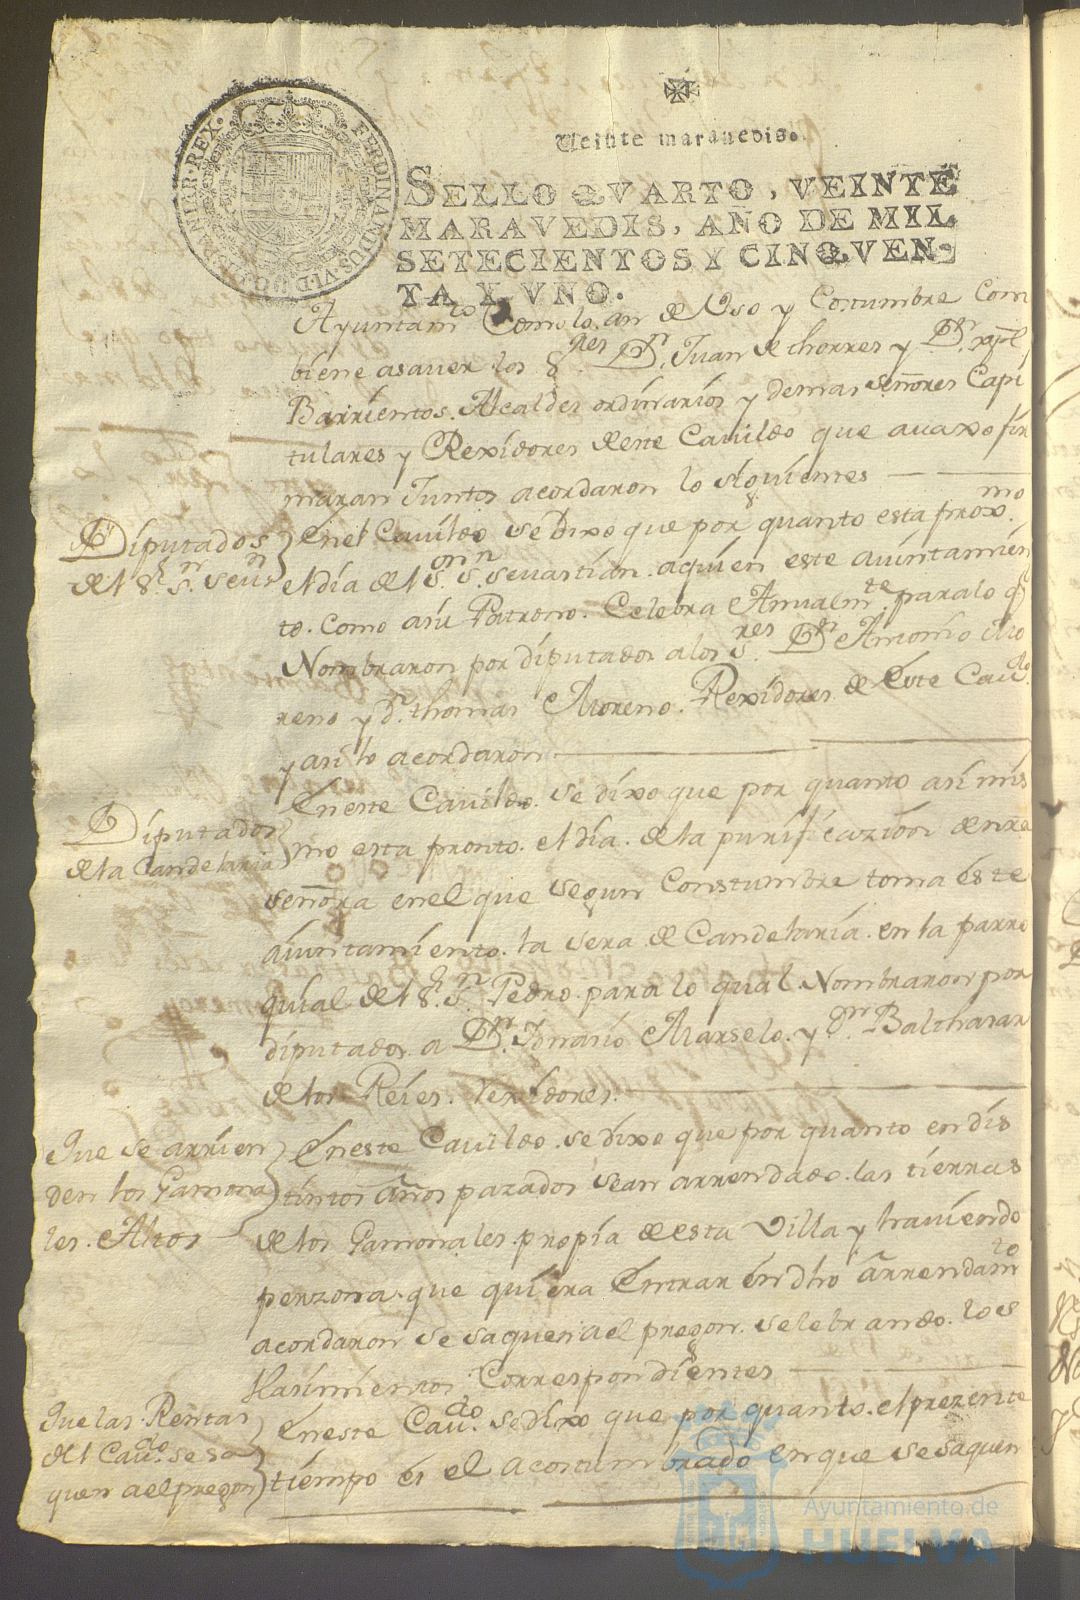 FERDINANDUS·VI·D·G· HISPANIAR·REX·
Veinte maravedis.
SELLO QVARTO, VEINTE
MARAVEDIS, AÑO DE MIL
SETECIENTOS Y CINQVEN-
TA Y VNO.
Ayuntamto Como lo an de Uso y Costumbre Com
biene asaver los Sres Dn. Juan de thorres y Dn. xpl
Barrientos. Alcaldes ordinarios y demas señores Capi
tulares y Rexidores de este Cavildo que avaxo fir
maran Juntos acordaron lo siguientes
Diputados
del Sr. Sn. Sevn
En el Cavildo se dixo que por quanto esta prox.mo
el dia del Sor. Sn. Sevastian. aquien este aiuntamien
to. Como asu Patrono. Celebra Anualmte. para lo q
Nombraron por diputados alos Sres. Dn Antonio Mo
reno y D. thomas Moreno. Rexidores de Este Cavdo.
y asi lo acordaron
Diputados
de la Candelaria
En este Cavildo. se dixo que por quanto asi mis
mo esta pronto. el dia. de la purificazion de nra
señora en el que segun Constumbre toma este
aiuntamiento. la sera de Candelaria. en la parro
quial del Sr. Sn Pedro. para lo qual Nombraron por
diputados. a Dn. Ignasio Marselo. y Dn. Balthasar
de los Reies. rexidores.
Que se arrien
den los Gamona
les. Altos
En este Cavildo. se dixo que por quanto en dis
tintos años pazados sean arrendado. las tierras
de los Gamonales. propia de esta Villa y haviendo
perzona. que quiera Entrar en dho arrendamto
acordaron se saquen ael pregon. selebrando. los
Hasimientos Correspondientes
Que las. Rentas
del Cavdo. se sa
quen ael pregon
En este Cavdo. se dixo que por quanto. el prezente
tiempo es el acostumbrado en que se saquen
Ayuntamiento de
HUELVA